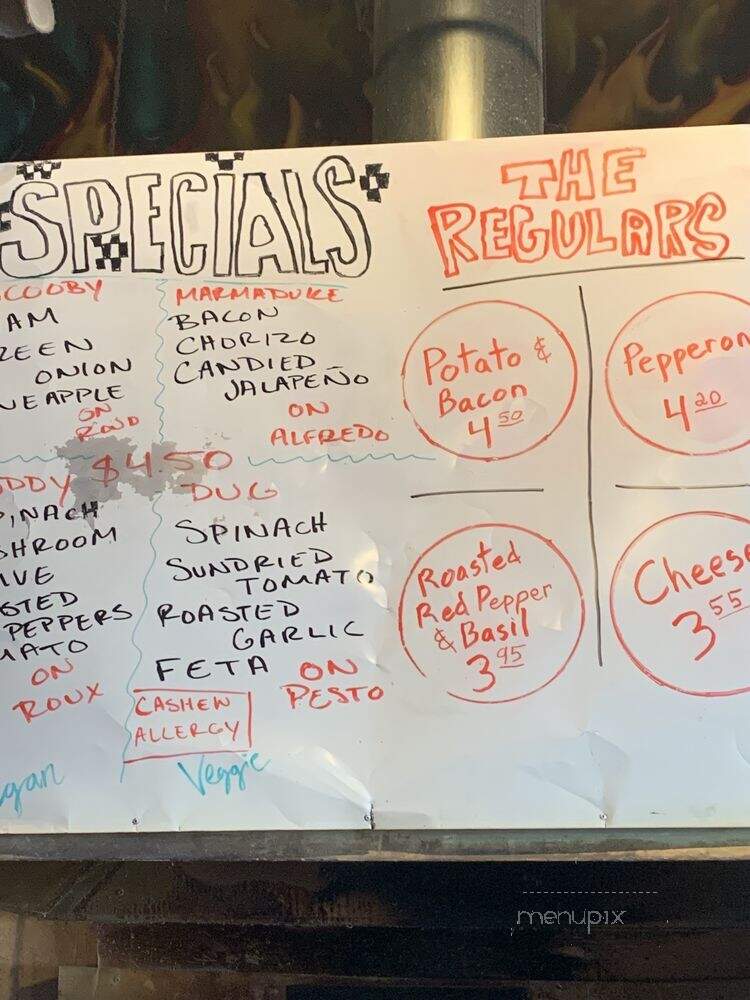 SPECIALS
COOBY
AM
REEN
ONION
NEAPPLE
ON
ROUD
MARMADUKE
BACON
CHORIZO
CANDIED
JALAPEÑO
ON
ALFREDO
$4.50
DDY
PINACH
SHROOM
IVE
STED
PEPPERS
MATO
ON
ROUX
gan
DUG
SPINACH
SUNDRIED
TOMATO
ROASTED
GARLIC
FETA ON
PESTO
CASHEW
ALLERGY
Veggie
THE
REGULARS
Potato &
Bacon
4 50
Pepperon
4 20
Roasted
Red Pepper
& Basil
3 95
Cheese
3 55
menupix